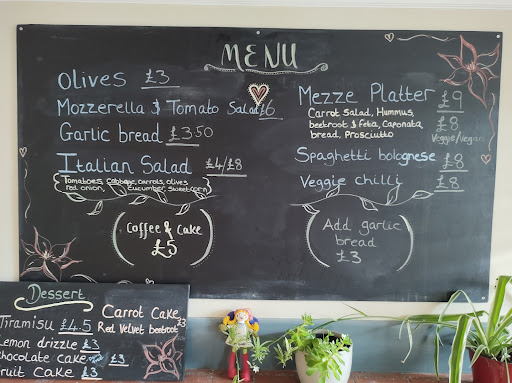 MENU
Olives £3
Mozzerella & Tomato Salad £6
Garlic bread £3.50
Italian Salad £4/£8
Tomatoes, Cabbage, carrots, olives,
red onion, cucumber, sweetcorn
Coffee & Cake
£5
Mezze Platter £9
Carrot Salad, Hummus, £8
beetroot & feta, Caponata, Veggie/Vegan
bread, Prosciutto
Spaghetti bolognese £8
Veggie chilli £8
Add garlic
bread
£3
Dessert
Tiramisu £4.5
Lemon drizzle £3
Chocolate cake £3
Fruit Cake £3
Carrot Cake
Red Velvet beetroot £3